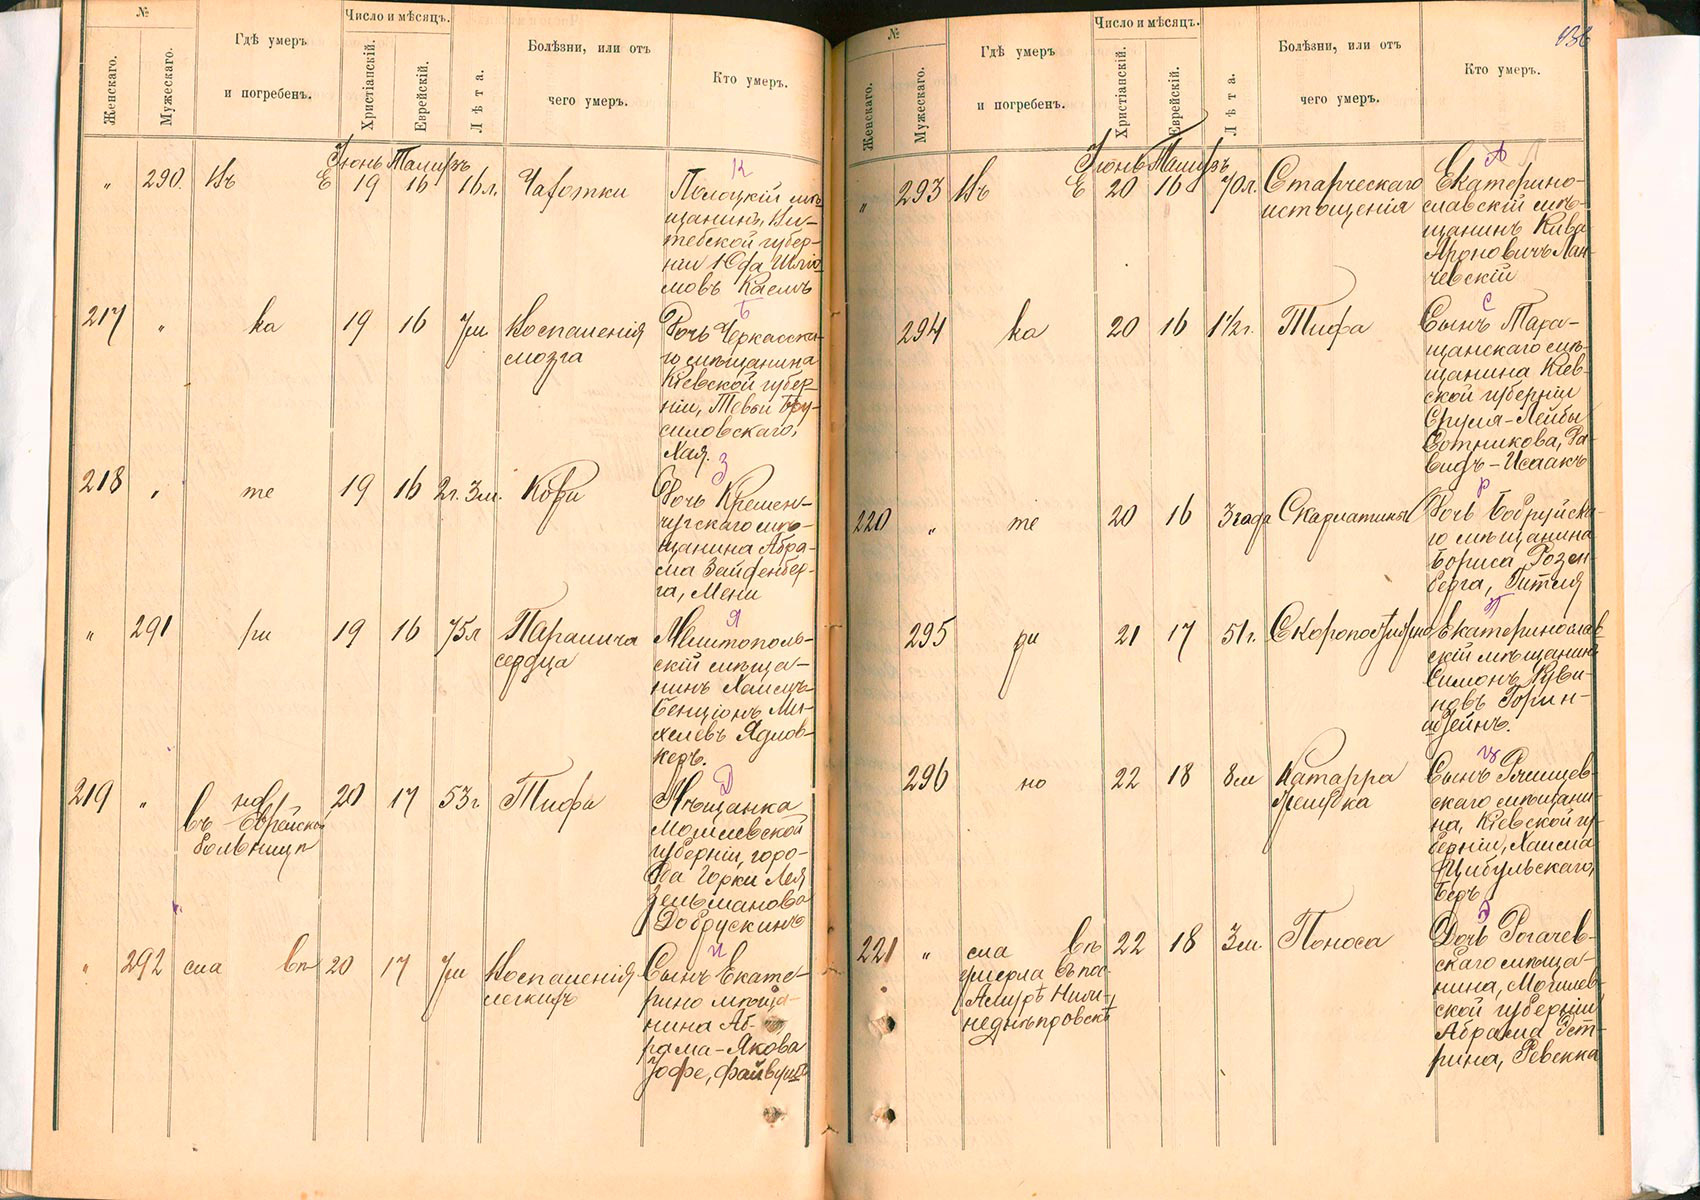 №
Женскаго.
Мужескаго.
Гдѣ умеръ
и погребенъ.
Число и мѣсяцъ.
Христіанскій.
Еврейскій.
Лѣта.
Болѣзни, или отъ
чего умеръ.
Кто умеръ.
Іюнь Тамузъ
К
" 290. Въ Е 19 16 16л. Чахотки
Полоцкій мѣ-
щанинъ, Ви-
тебской губер-
ніи Юфа Шліо-
мовъ Каемъ
Б
217 " ка 19 16 7м Воспаленія
мозга
Дочь Черкасска-
го мѣщанина
Кіевской губер-
ніи, Тевьи Бру-
силовскаго,
Хая.
З
218 " те 19 16 2г. 3м. Кори
Дочь Кремен-
чугскаго мѣ-
щанина Абра-
ма Зайфенбер-
га, Мени
Я
" 291 ри 19 16 75л Паралича
сердца
Мелитополь-
скій мѣща-
нинъ Хаимъ-
Бенціонъ Ми-
хелевъ Ядлов-
керъ.
Д
219 " но 20 17 53г Тифа
въ Еврейской
больницѣ
Мѣщанка
Могилевской
губерніи, горо-
да Горки Лея
Зельманова
Добрускинъ
И
" 292 сла вп 20 17 7м Воспаленія
легкихъ
Сынъ Екате-
рино мѣща-
нина Аб-
рама-Якова
Іофе, Файвушъ
136
№
Женскаго.
Мужескаго.
Гдѣ умеръ
и погребенъ.
Число и мѣсяцъ.
Христіанскій.
Еврейскій.
Лѣта.
Болѣзни, или отъ
чего умеръ.
Кто умеръ.
Іюнь Тамузъ
Л
" 293 Въ Е 20 16 70л. Старческаго
истощенія
Екатерино-
славскій мѣ-
щанинъ Кива
Ароновичъ Лан-
чевскій
С
294 ка 20 16 1½г. Тифа
Сынъ Тара-
щанскаго мѣ-
щанина Кіев-
ской губерніи
Сруля-Лейбы
Сотникова, Да-
видъ-Исаакъ
Р
220 " те 20 16 3 года Скарлатины
Дочь Бобруйска-
го мѣщанина
Бориса Розен-
берга, Гитля
Г
295 ри 21 17 51г. Скоропостижно
Екатеринослав-
скій мѣщанинъ
Симонъ Руви-
новъ Горин-
штейнъ.
Ц
296 но 22 18 8м Катарра
желудка
Сынъ Ржищев-
скаго мѣщани-
на, Кіевской гу-
берніи, Хаима
Цибульскаго,
Беръ
221 " сла вп 22 18 3м. Поноса
умерла въ пос.
Амурѣ Нижн-
неднѣпровскѣ
Дочь Рогачев-
скаго мѣща-
нина, Могилев-
ской губерніи
Абрама Эст-
рина, Ревекка